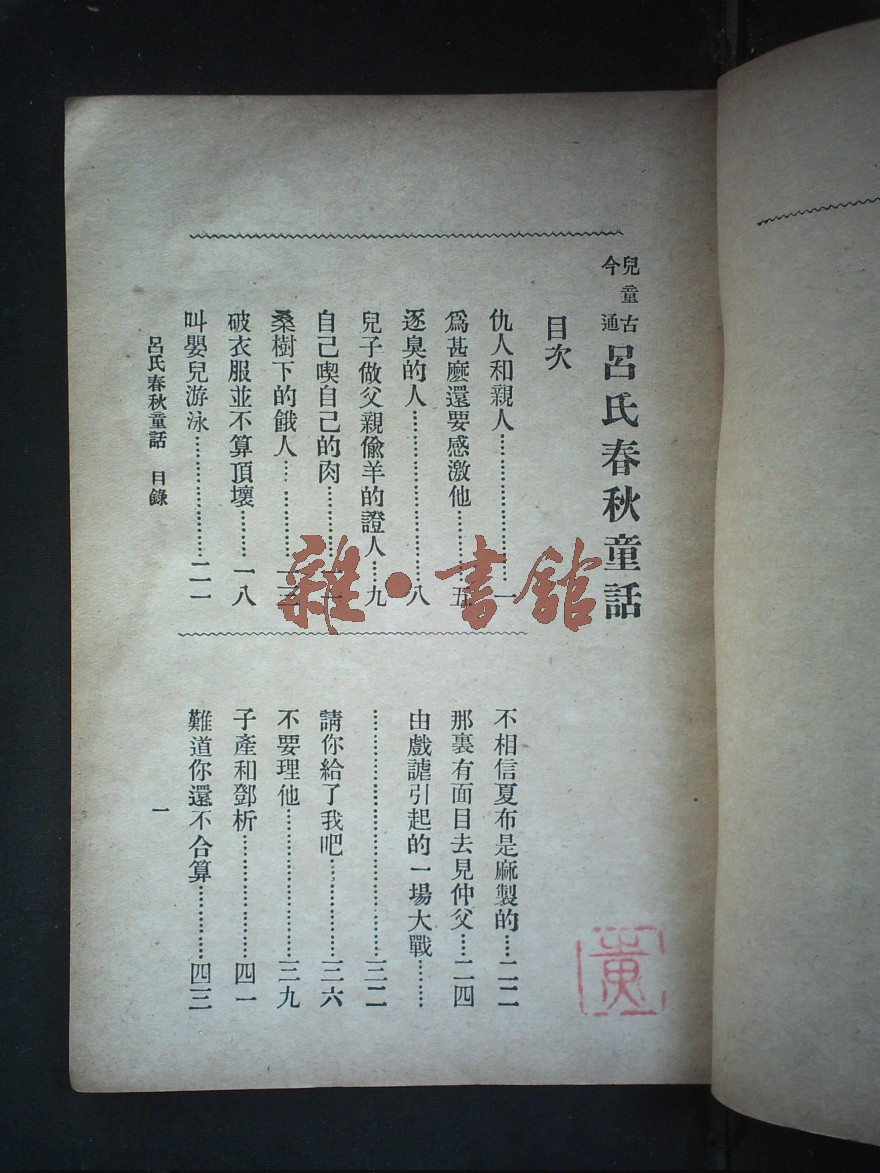 兒童古今通
呂氏春秋童話
目次
仇人和親人……………………一
爲甚麼還要感激他………五
逐臭的人……………………八
兒子做父親偸羊的證人…九
自己喫自己的肉…………一一
桑樹下的餓人………………一三
破衣服並不算頂壞………一八
叫嬰兒游泳…………………二一
不相信夏布是麻製的……二二
那裏有面目去見仲父……二四
由戲謔引起的一場大戰………
……………………………三二
請你給了我吧………………三六
不要理他……………………三九
子產和鄧析…………………四一
難道你還不合算……………四三
呂氏春秋童話 目錄
一
雜·書館
黄